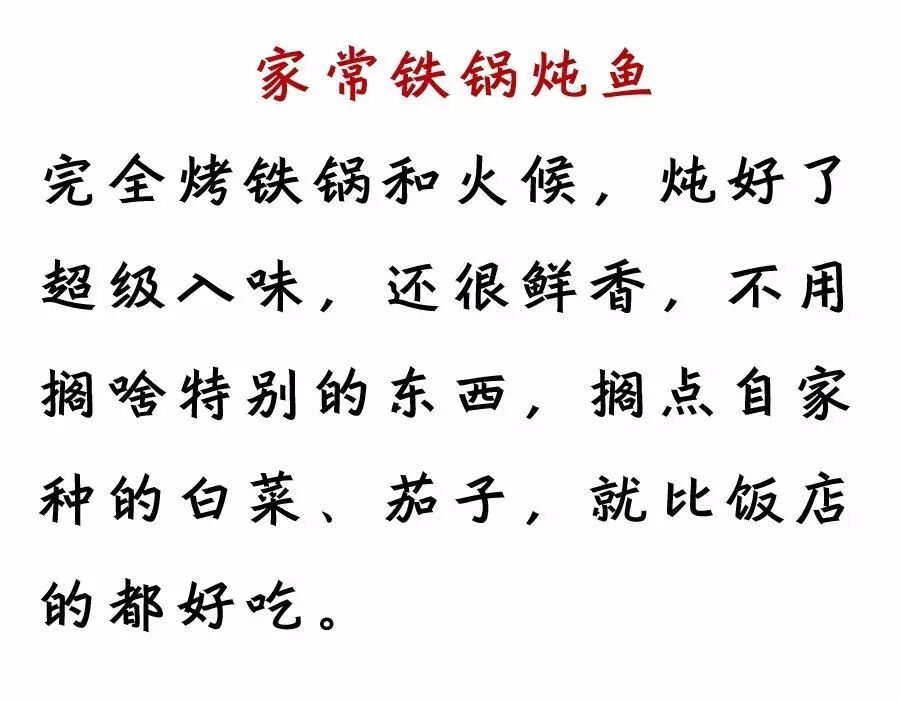 家常铁锅炖鱼
完全烤铁锅和火候，炖好了
超级入味，还很鲜香，不用
搁啥特别的东西，搁点自家
种的白菜、茄子，就比饭店
的都好吃。